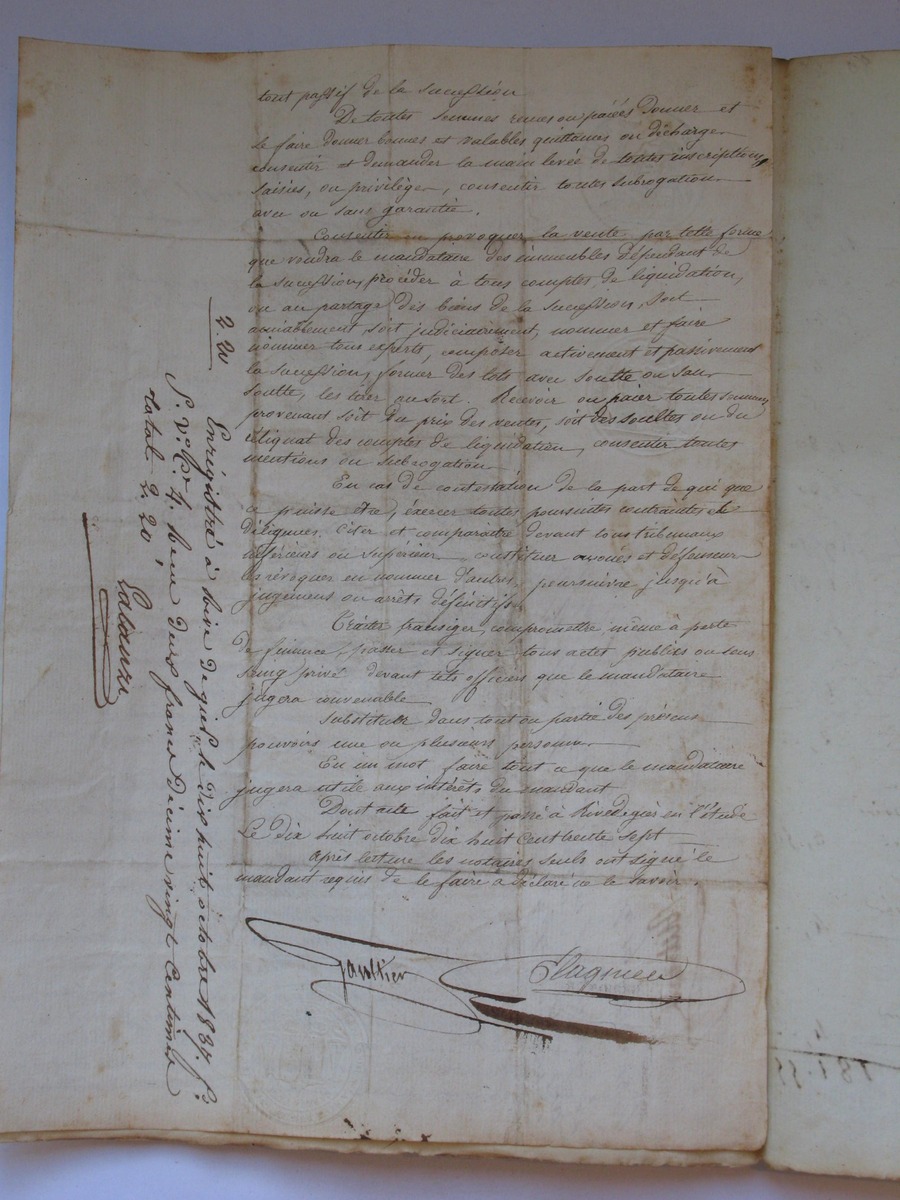 tout passif de la succession
De toutes sommes reçues ou païées donner et
se faire donner bonnes et valables quittances ou décharge
consentir et demander la main levée de toutes inscriptions,
saisies, ou privilège, consentir toutes subrogation
avec ou sans garantie.
Consentir ou provoquer la vente par telle forme
que voudra le mandataire des immeubles dépendant de
la succession, procéder à tous comptes de liquidation,
ou au partage des biens de la succession, soit
amiablement, soit judiciairement, nommer et faire
nommer tous experts, composer activement et passivement
la succession, former des lots avec soulte ou sans
soulte, les tirer au sort. Recevoir ou païer toutes sommes
provenant soit du prix des ventes, soit des soultes ou du
reliquat des comptes de liquidation, consentir toutes
mentions ou subrogation
En cas de contestation de la part de qui que
ce puisse être, éxercer toutes poursuites contraintes et
diligences. Citer et comparaitre devant tous tribunaux
inférieurs ou supérieur constituer avoués et défenseur
les révoquer en nommer d'autres, poursuivre jusqu'à
jugemens ou arrêts définitifs.
Traiter transiger, compromettre même à perte
de finance, passer et signer tous actes publics ou sous
seing privé devant tels officiers que le mandataire
jugera convenable
Substituer dans tout ou partie des présens
pouvoirs une ou plusieurs personne
En un mot faire tout ce que le mandataire
jugera utile aux intérêts du mandant
Dont acte fait et passé à Rivedegier en l'étude
Le dix huit octobre dix huit cent trente sept
Après lecture les notaires seuls ont signé le
mandant requis de le faire a déclaré ne le savoir.
Gaultier
2.20
Enrégistré à Rive de gier le dix huit octobre 1837. f.
deux francs Décime vingt Centimes
total 2.20,